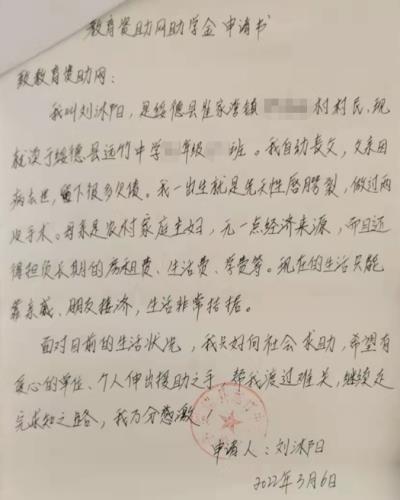 教育资助网助学金申请书
致教育资助网：
我叫刘沐阳，是绥德县崔家湾镇村村民，现
就读于绥德县远竹中学年级班。我自幼丧父，父亲因
病去世，留下很多欠债。我一出生就是先天性唇腭裂，做过两
次手术。母亲是农村家庭主妇，无一点经济来源，而且还
得担负长期的房租费、生活费、学费等。现在的生活只能
靠亲戚、朋友接济，生活非常拮据。
面对目前的生活状况，我只好向社会求助，希望有
爱心的单位、个人伸出援助之手，帮我渡过难关，继续走
完求知之路，我万分感激！
申请人：刘沐阳
2022年3月6日